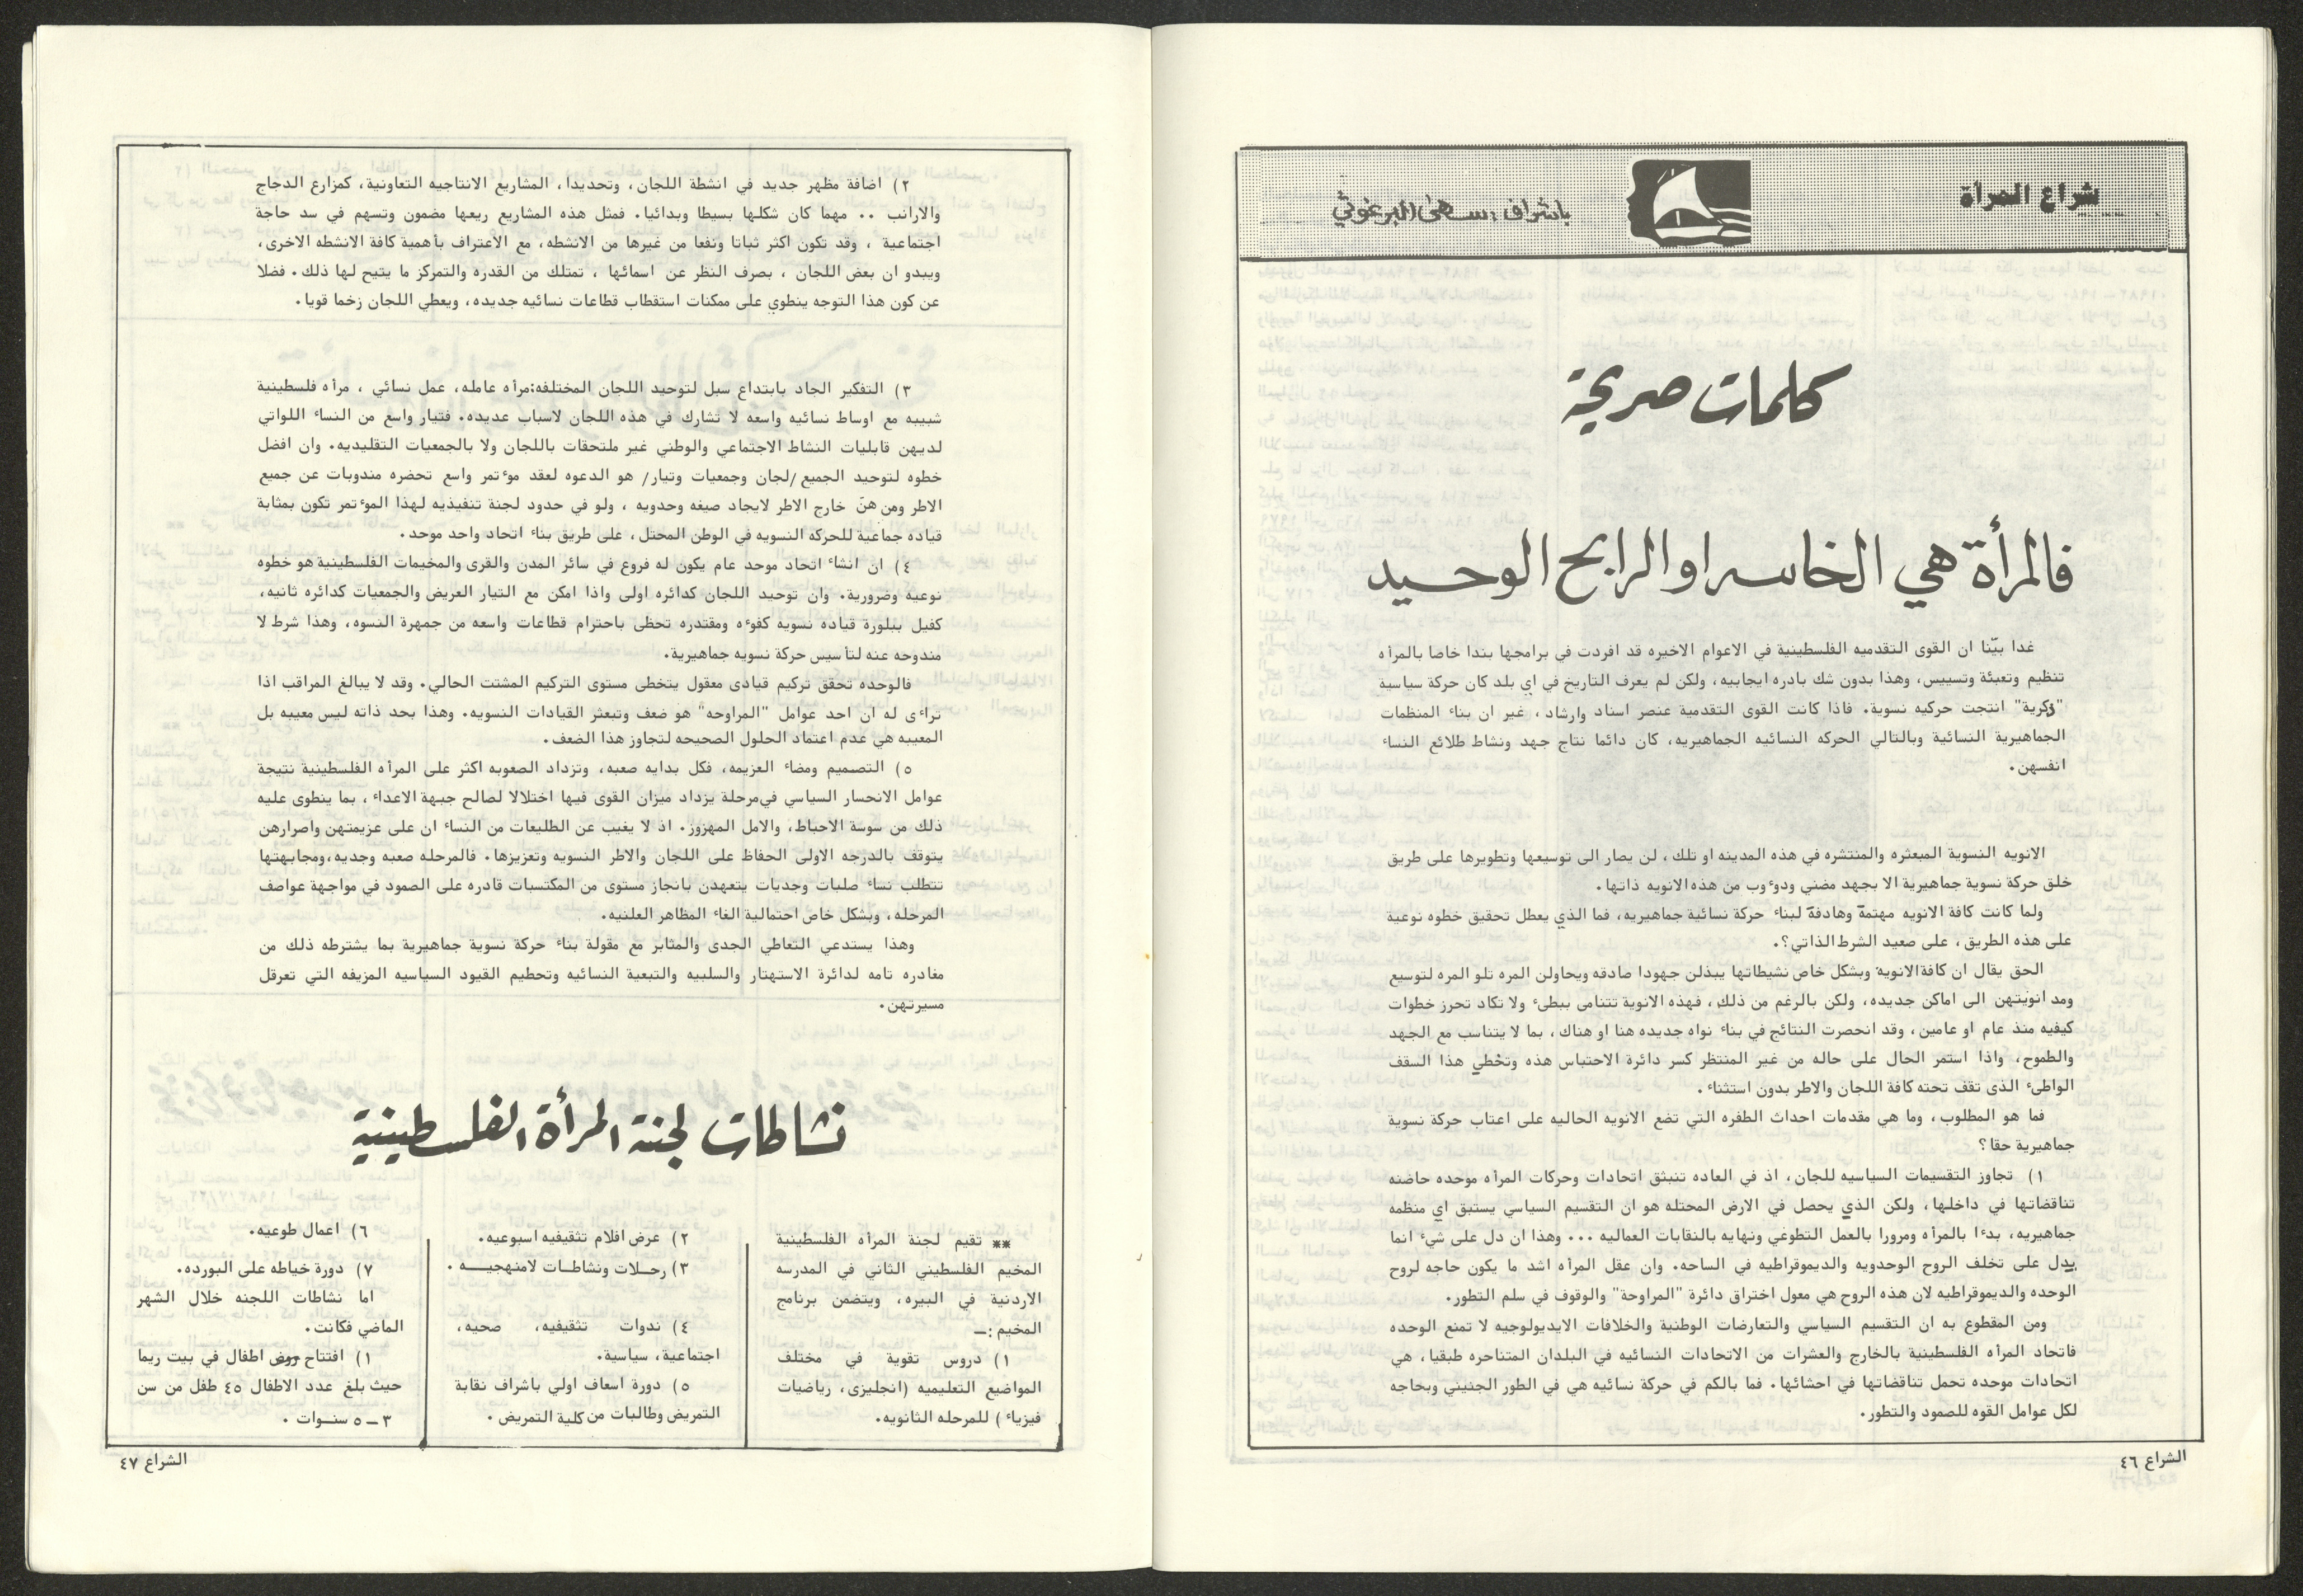 شراع المرأة
باشراف : سهى البرغوثي
كلمات صريحة
فالمرأة هي الخاسر او الرابح الوحيد
غدا بيّنا ان القوى التقدميه الفلسطينية في الاعوام الاخيره قد افردت في برامجها بندا خاصا بالمرأه
تنظيم وتعبئة وتسييس، وهذا بدون شك بادره ايجابيه، ولكن لم يعرف التاريخ في اي بلد كان حركة سياسية
"ذكرية" انتجت حركيه نسوية. فاذا كانت القوى التقدمية عنصر اسناد وارشاد، غير ان بناء المنظمات
الجماهيرية النسائية وبالتالي الحركه النسائيه الجماهيريه، كان دائما نتاج جهد ونشاط طلائع النساء
انفسهن.
الانويه النسوية المبعثره والمنتشره في هذه المدينه او تلك، لن يصار الى توسيعها وتطويرها على طريق
خلق حركة نسوية جماهيرية الا بجهد مضني ودوءوب من هذه الانويه ذاتها.
ولما كانت كافة الانويه مهتمة وهادفة لبناء حركة نسائية جماهيريه، فما الذي يعطل تحقيق خطوه نوعية
على هذه الطريق، على صعيد الشرط الذاتي؟.
الحق يقال ان كافة الانوية وبشكل خاص نشيطاتها يبذلن جهودا صادقه ويحاولن المره تلو المره لتوسيع
ومد انويتهن الى اماكن جديده، ولكن بالرغم من ذلك، فهذه الانوية تتنامى ببطىء ولا تكاد تحرز خطوات
كيفيه منذ عام او عامين، وقد انحصرت النتائج في بناء نواه جديده هنا او هناك، بما لا يتناسب مع الجهد
والطموح، واذا استمر الحال على حاله من غير المنتظر كسر دائرة الاحتباس هذه وتخطي هذا السقف
الواطىء الذى تقف تحته كافة اللجان والاطر بدون استثناء.
فما هو المطلوب، وما هي مقدمات احداث الطفره التي تضع الانويه الحاليه على اعتاب حركة نسوية
جماهيرية حقا؟
١) تجاوز التقسيمات السياسيه للجان، اذ في العاده تنبثق اتحادات وحركات المرأه موحده حاضنه
تناقضاتها في داخلها، ولكن الذي يحصل في الارض المحتله هو ان التقسيم السياسي يستبق اي منظمه
جماهيريه، بدءا بالمرأه ومرورا بالعمل التطوعي ونهايه بالنقابات العماليه ... وهذا ان دل على شيء انما
يدل على تخلف الروح الوحدويه والديموقراطيه في الساحه. وان عقل المرأه اشد ما يكون حاجه لروح
الوحده والديموقراطيه لان هذه الروح هي معول اختراق دائرة "المراوحة" والوقوف في سلم التطور.
ومن المقطوع به ان التقسيم السياسي والتعارضات الوطنية والخلافات الايديولوجيه لا تمنع الوحده
فاتحاد المرأه الفلسطينية بالخارج والعشرات من الاتحادات النسائيه في البلدان المتناحره طبقيا، هي
اتحادات موحده تحمل تناقضاتها في احشائها. فما بالكم في حركة نسائيه هي في الطور الجنيني وبحاجه
لكل عوامل القوه للصمود والتطور.
الشراع ٤٦
٢) اضافة مظهر جديد في انشطة اللجان، وتحديدا، المشاريع الانتاجيه التعاونية، كمزارع الدجاج
والارانب .. مهما كان شكلها بسيطا وبدائيا. فمثل هذه المشاريع ريعها مضمون وتسهم في سد حاجة
اجتماعية ، وقد تكون اكثر ثباتا ونفعا من غيرها من الانشطه، مع الاعتراف بأهمية كافة الانشطه الاخرى،
ويبدو ان بعض اللجان ، بصرف النظر عن اسمائها ، تمتلك من القدره والتمركز ما يتيح لها ذلك. فضلا
عن كون هذا التوجه ينطوي على ممكنات استقطاب قطاعات نسائيه جديده، ويعطي اللجان زخما قويا.
٣) التفكير الجاد بابتداع سبل لتوحيد اللجان المختلفه:مرأه عامله، عمل نسائي ، مرأه فلسطينية
شبيبه مع اوساط نسائيه واسعه لا تشارك في هذه اللجان لاسباب عديده. فتيار واسع من النساء اللواتي
لديهن قابليات النشاط الاجتماعي والوطني غير ملتحقات باللجان ولا بالجمعيات التقليديه. وان افضل
خطوه لتوحيد الجميع /لجان وجمعيات وتيار/ هو الدعوه لعقد موءتمر واسع تحضره مندوبات عن جميع
الاطر ومن هنّ خارج الاطر لايجاد صيغه وحدويه ، ولو في حدود لجنة تنفيذيه لهذا الموءتمر تكون بمثابة
قياده جماعية للحركه النسويه في الوطن المحتل، على طريق بناء اتحاد واحد موحد.
٤) ان انشاء اتحاد موحد عام يكون له فروع في سائر المدن والقرى والمخيمات الفلسطينية هو خطوه
نوعيه وضرورية. وان توحيد اللجان كدائره اولى واذا امكن مع التيار العريض والجمعيات كدائره ثانيه،
كفيل ببلورة قياده نسويه كفوءه ومقتدره تحظى باحترام قطاعات واسعه من جمهرة النسوه، وهذا شرط لا
مندوحه عنه لتأسيس حركة نسويه جماهيرية.
فالوحده تحقق تركيم قيادى معقول يتخطى مستوى التركيم المشتت الحالي. وقد لا يبالغ المراقب اذا
تراءى له ان احد عوامل "المراوحه" هو ضعف وتبعثر القيادات النسويه. وهذا بحد ذاته ليس معيبه بل
المعيبه هي عدم اعتماد الحلول الصحيحه لتجاوز هذا الضعف.
٥) التصميم ومضاء العزيمه، فكل بدايه صعبه، وتزداد الصعوبه اكثر على المرأه الفلسطينية نتيجة
عوامل الانحسار السياسي في مرحلة يزداد ميزان القوى فيها اختلالا لصالح جبهة الاعداء ، بما ينطوى عليه
ذلك من سوسة الاحباط، والامل المهزوز. اذ لا يغيب عن الطليعات من النساء ان على عزيمتهن واصرارهن
يتوقف بالدرجه الاولى الحفاظ على اللجان والاطر النسويه وتعزيزها. فالمرحله صعبه وجديه،ومجابهتها
تتطلب نساء صلبات وجديات يتعهدن بانجاز مستوى من المكتسبات قادره على الصمود في مواجهة عواصف
المرحله، وبشكل خاص احتمالية الغاء المظاهر العلنيه.
وهذا يستدعي التعاطي الجدى والمثابر مع مقولة بناء حركة نسوية جماهيرية بما يشترطه ذلك من
مغادره تامه لدائرة الاستهتار والسلبيه والتبعية النسائيه وتحطيم القيود السياسيه المزيفه التي تعرقل
مسيرتهن.
نشاطات لجنة المرأة الفلسطينية
** تقيم لجنة المرأه الفلسطينية
المخيم الفلسطيني الثاني في المدرسه
الاردنية في البيره، ويتضمن برنامج
المخيم :ـ
١) دروس تقوية في مختلف
المواضيع التعليميه (انجليزى، رياضيات
فيزياء ) للمرحله الثانويه.
٢) عرض افلام تثقيفيه اسبوعيه.
٣) رحــلات ونشاطــات لامنهجيــــه .
٤) ندوات تثقيفيه، صحيه،
اجتماعية، سياسية.
٥) دورة اسعاف اولي باشراف نقابة
التمريض وطالبات من كلية التمريض .
٦) اعمال طوعيه.
٧) دورة خياطه على البورده.
اما نشاطات اللجنه خلال الشهر
الماضي فكانت.
١) افتتاح روض اطفال في بيت ريما
حيث بلغ عدد الاطفال ٤٥ طفل من سن
٣ ـ ٥ سنــوات .
الشراع ٤٧